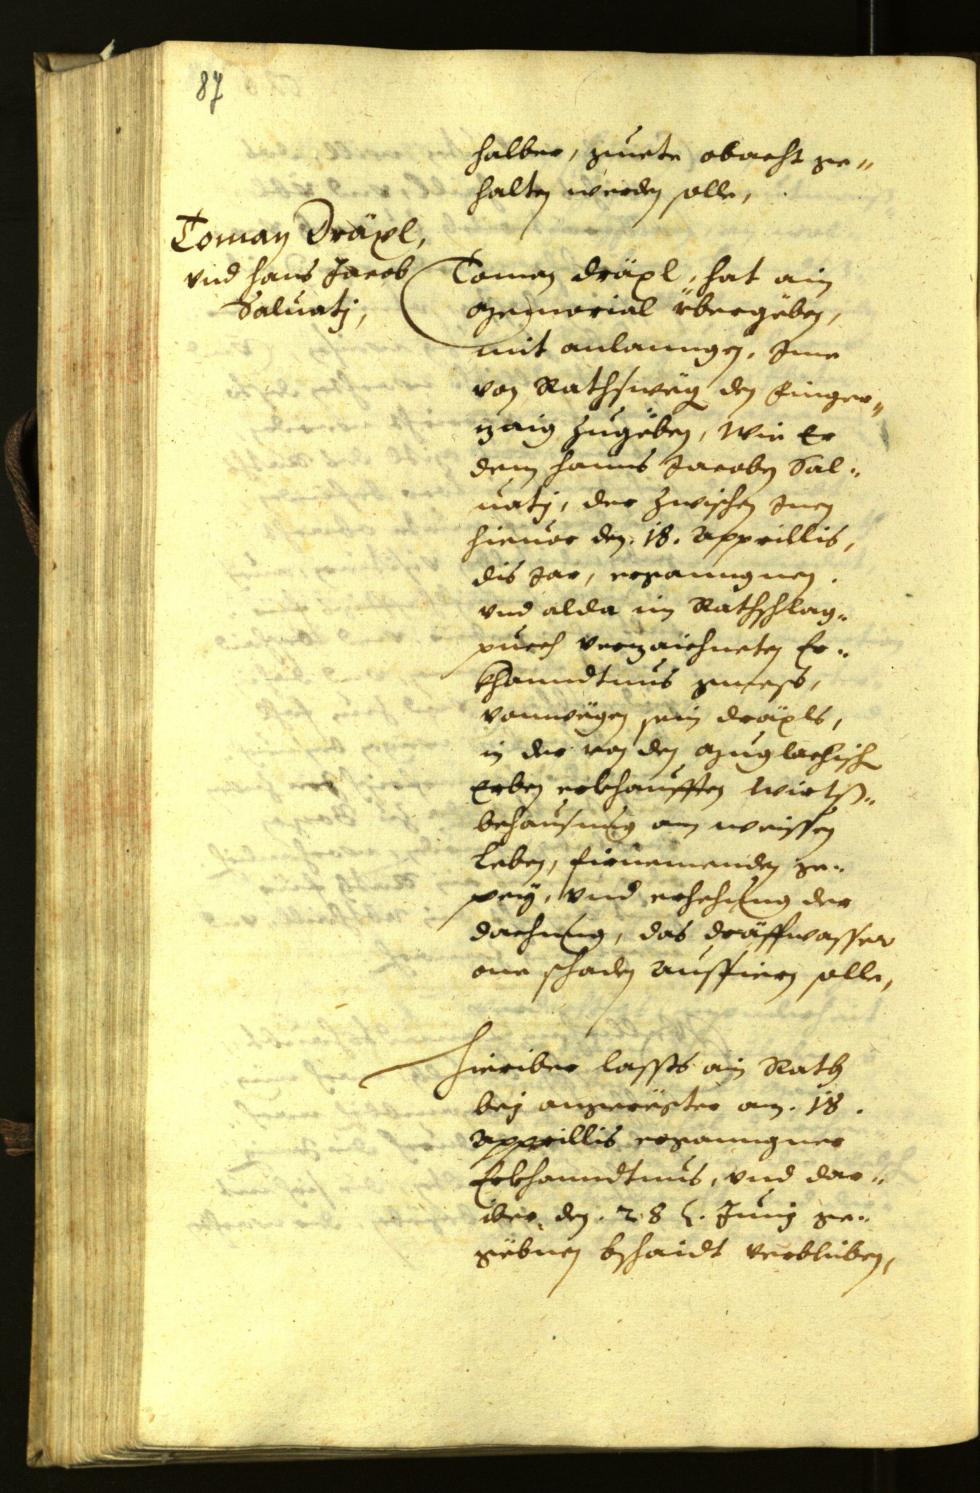 87
halber, guete obacht ge„
halten werden solle,
Toman Dräxl,
vnd hans Jacob
Saluatj,
Toman dräxl, hat ain
memorial vbergeben,
mit anlanngen, Jme
von Rathsweg den finger„
zaig zugeben, Wie Er
dem hanns Jacoben Sal„
uatj, der zwischen Jnen
hieuor den .18. Apprillis,
dis Jar, erganngnen
vnd alda im Rathschlag„
puech verzaichneten Er„
khanndtnus gmess,
vonwegen sein dräxls,
in der von den
Erben erkhaufften Wirts„
behausung am weissen
Leben, fürnemenden ge„
pey, vnd erhehung der
dachung, das dräffwasser
one schaden ausfiern solle,
Hieriber lassts ain Rath
bey angeregter am .18.
Apprillis erganngner
Erkhanndtnus, vnd dar„
iber, den .28 Junij ge„
gebnen bschaidt verbleiben,